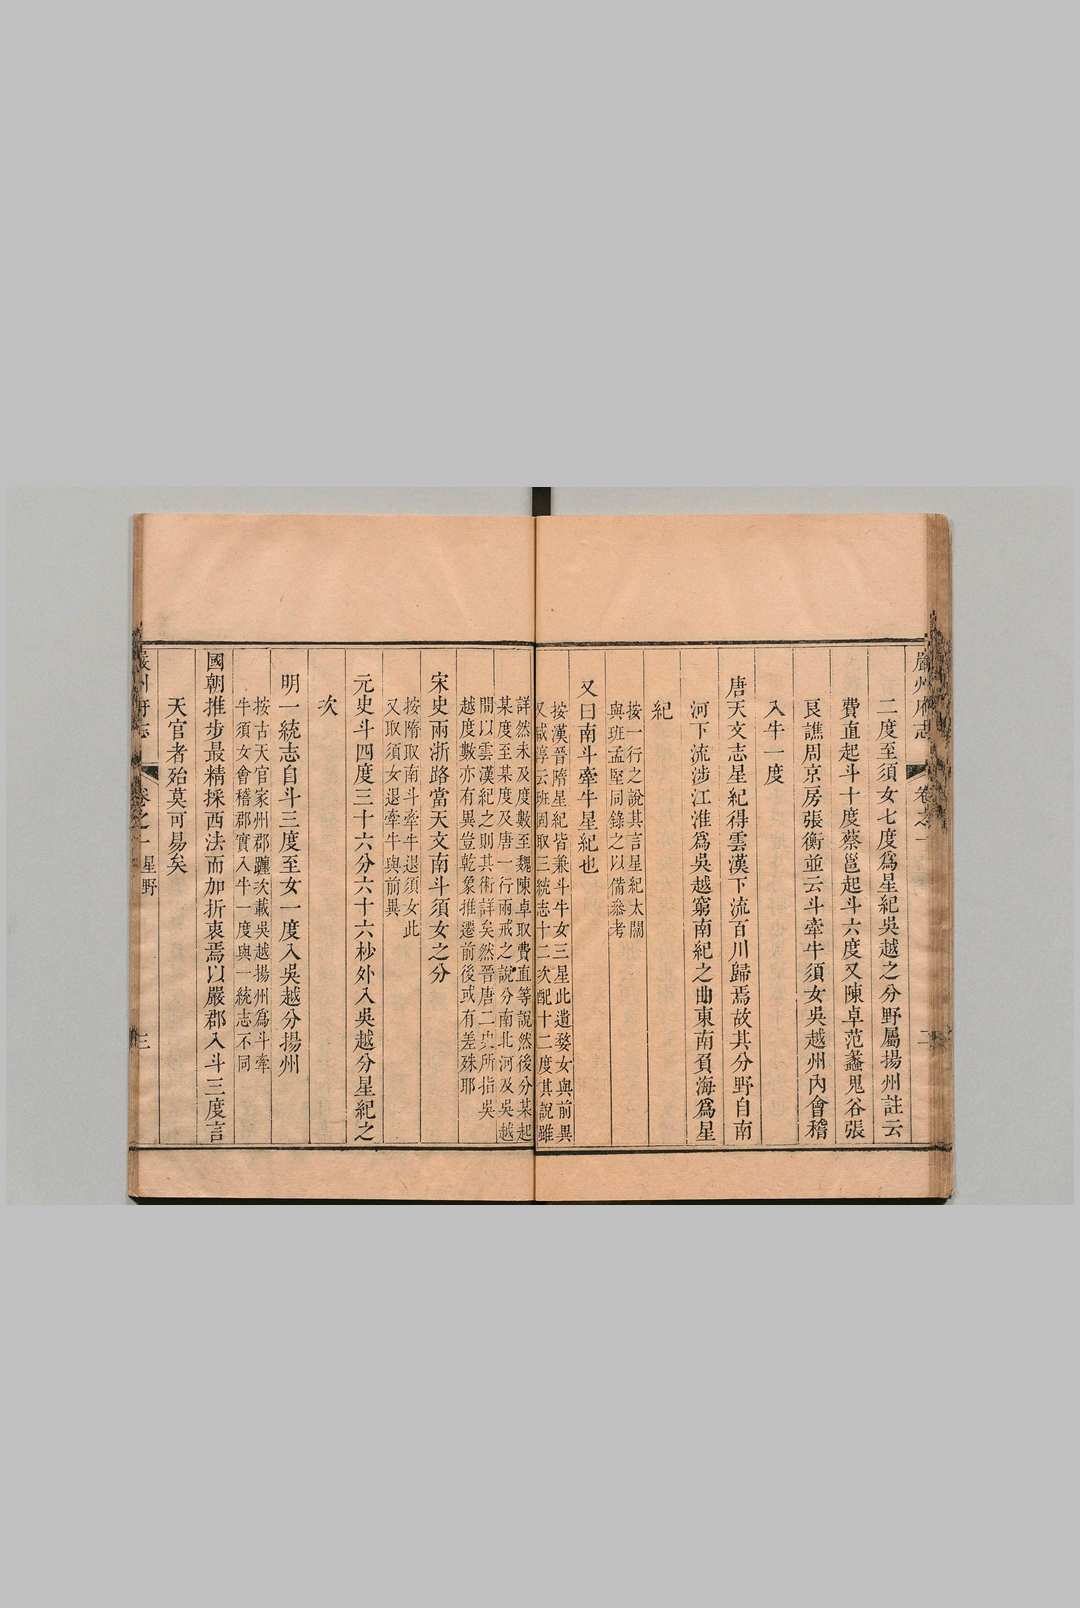 嚴州府志
卷之一
二
二度至須女七度爲星紀吳越之分野屬揚州註云
費直起斗十度蔡邕起斗六度又陳卓范蠡鬼谷張
良譙周京房張衡並云斗牽牛須女吳越州內會稽
入牛一度
唐天文志星紀得雲漢下流百川歸焉故其分野自南
河下流涉江淮爲吳越窮南紀之曲東南負海爲星
紀
按一行之說其言星紀太闊
與班孟堅同錄之以備叅考
又曰南斗牽牛星紀也
按漢晉隋星紀皆兼斗牛女三星此遺婺女與前異
又咸淳云班固取三統志十二次配十二度其說雖
詳然未及度數至魏陳卓取費直等說然後分某起
某度至某度及唐一行兩戒之說分南北河及吳越
間以雲漢紀之則其術詳矣然晉唐二史所指吳
越度數亦有異豈乾象推遷前後或有差殊耶
宋史兩浙路當天文南斗須女之分
按隋取南斗牽牛退須女此
又取須女退牽牛與前異
元史斗四度三十六分六十六秒外入吳越分星紀之
次
明一統志自斗三度至女一度入吳越分揚州
按古天官家州郡躔次載吳越揚州爲斗牽
牛須女會稽郡實入牛一度與一統志不同
國朝推步最精採西法而加折衷焉以嚴郡入斗三度言
天官者殆莫可易矣
嚴州府志
卷之一
星野
三